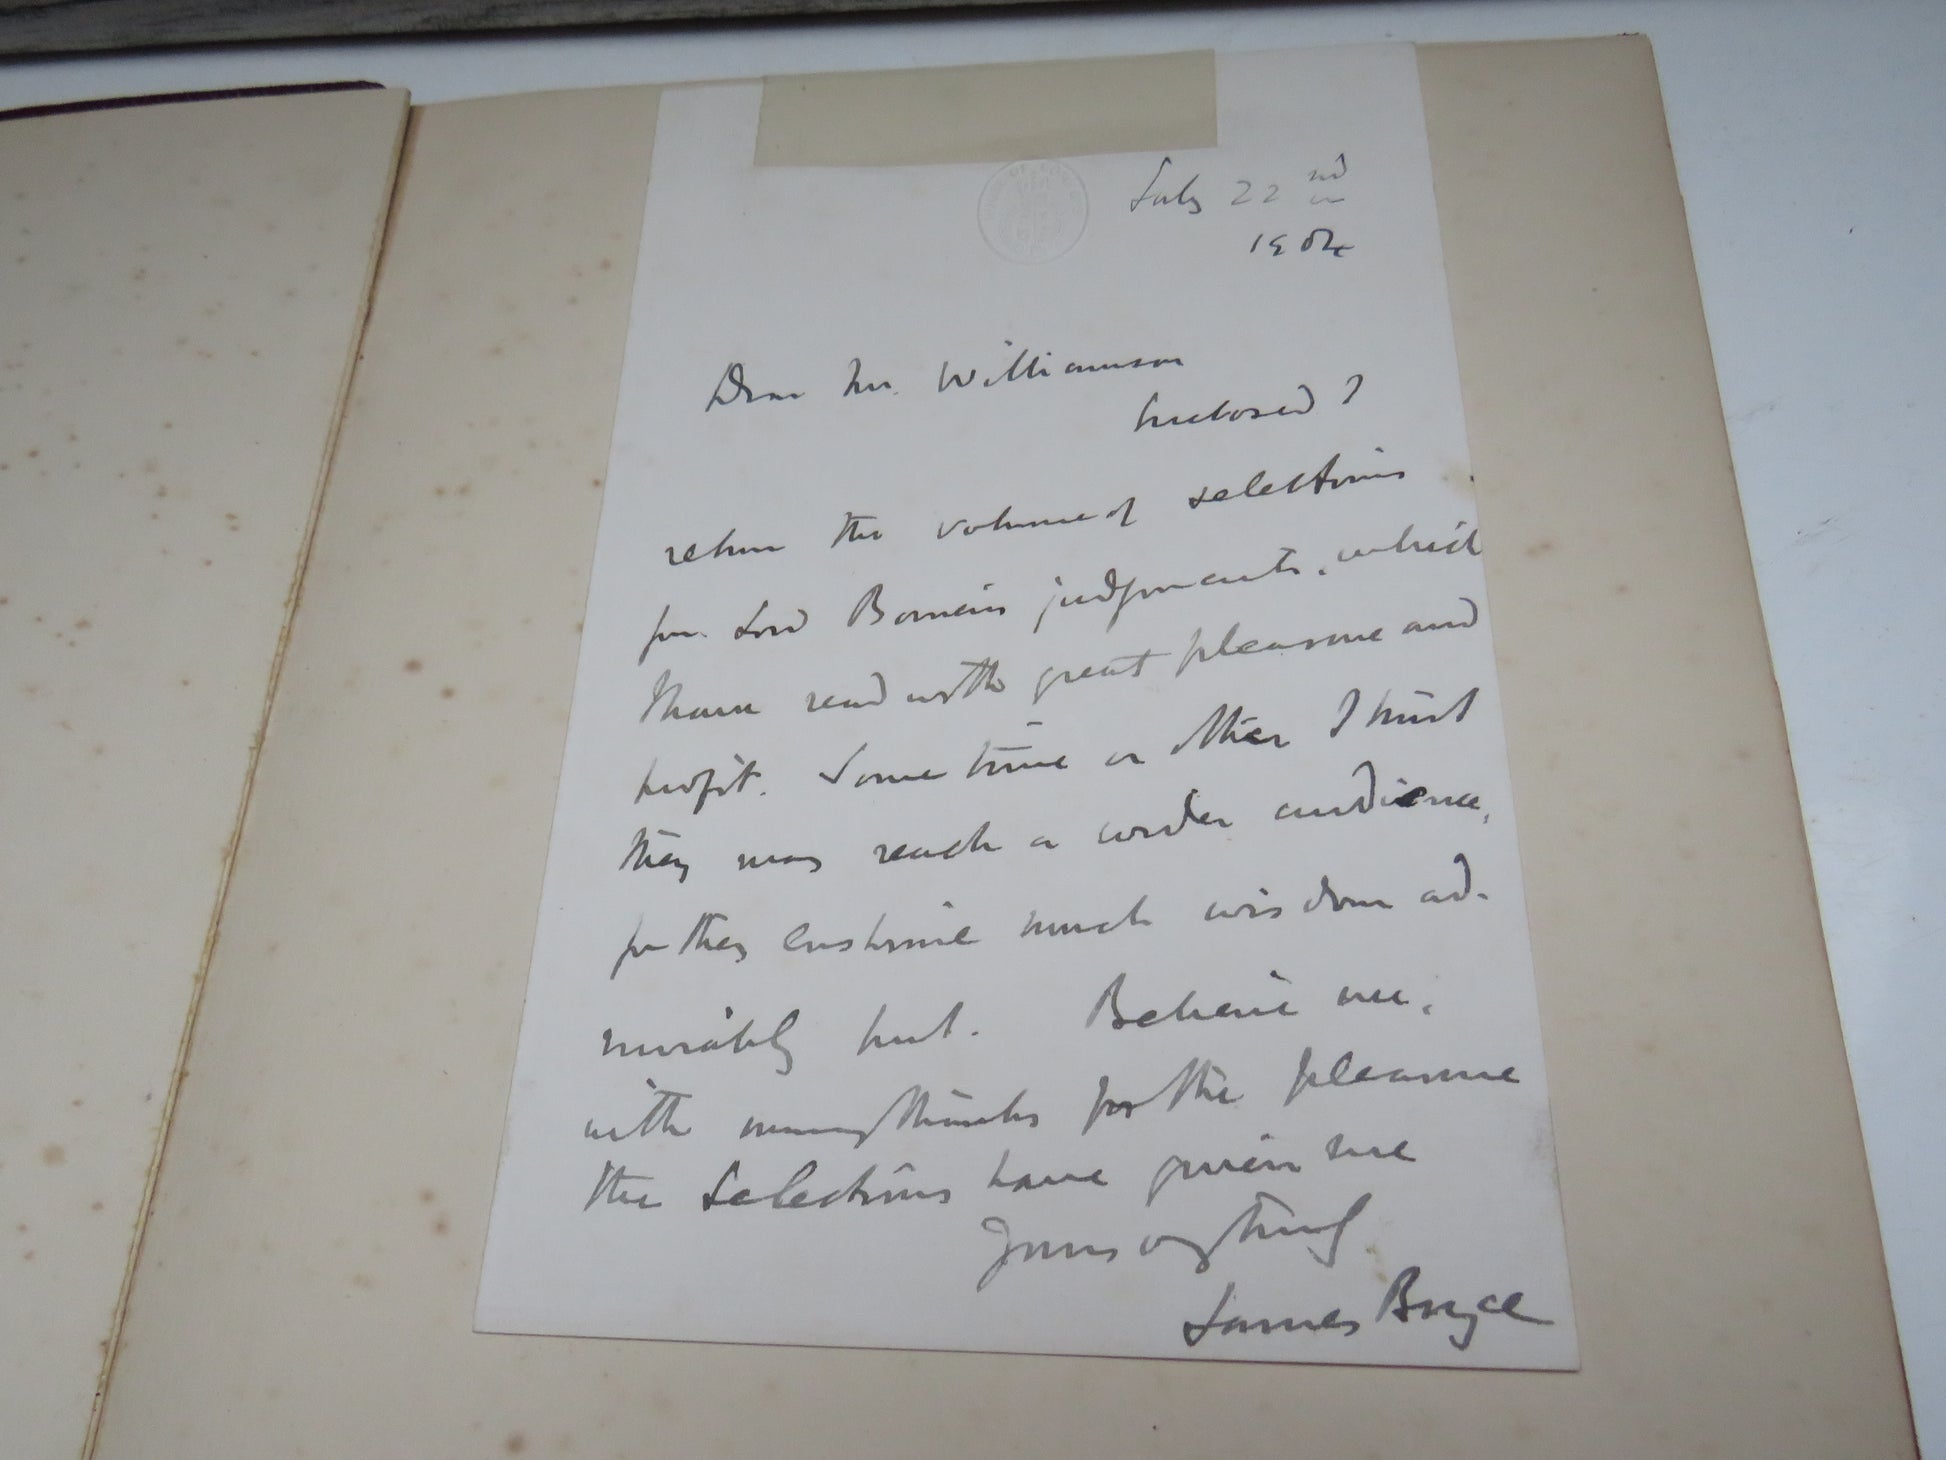 HOUSE OF COMMONS
July 22nd
1904
Dear Mr. Williamson
Enclosed I
return the volume of selections
from Lord Bowen's judgments, which
I have read with great pleasure and
profit. Some time or other I trust
they may reach a wider audience,
for they enshrine much wisdom ad-
mirably put. Believe me,
with many thanks for the pleasure
the Selections have given me
Yours very truly
James Bryce